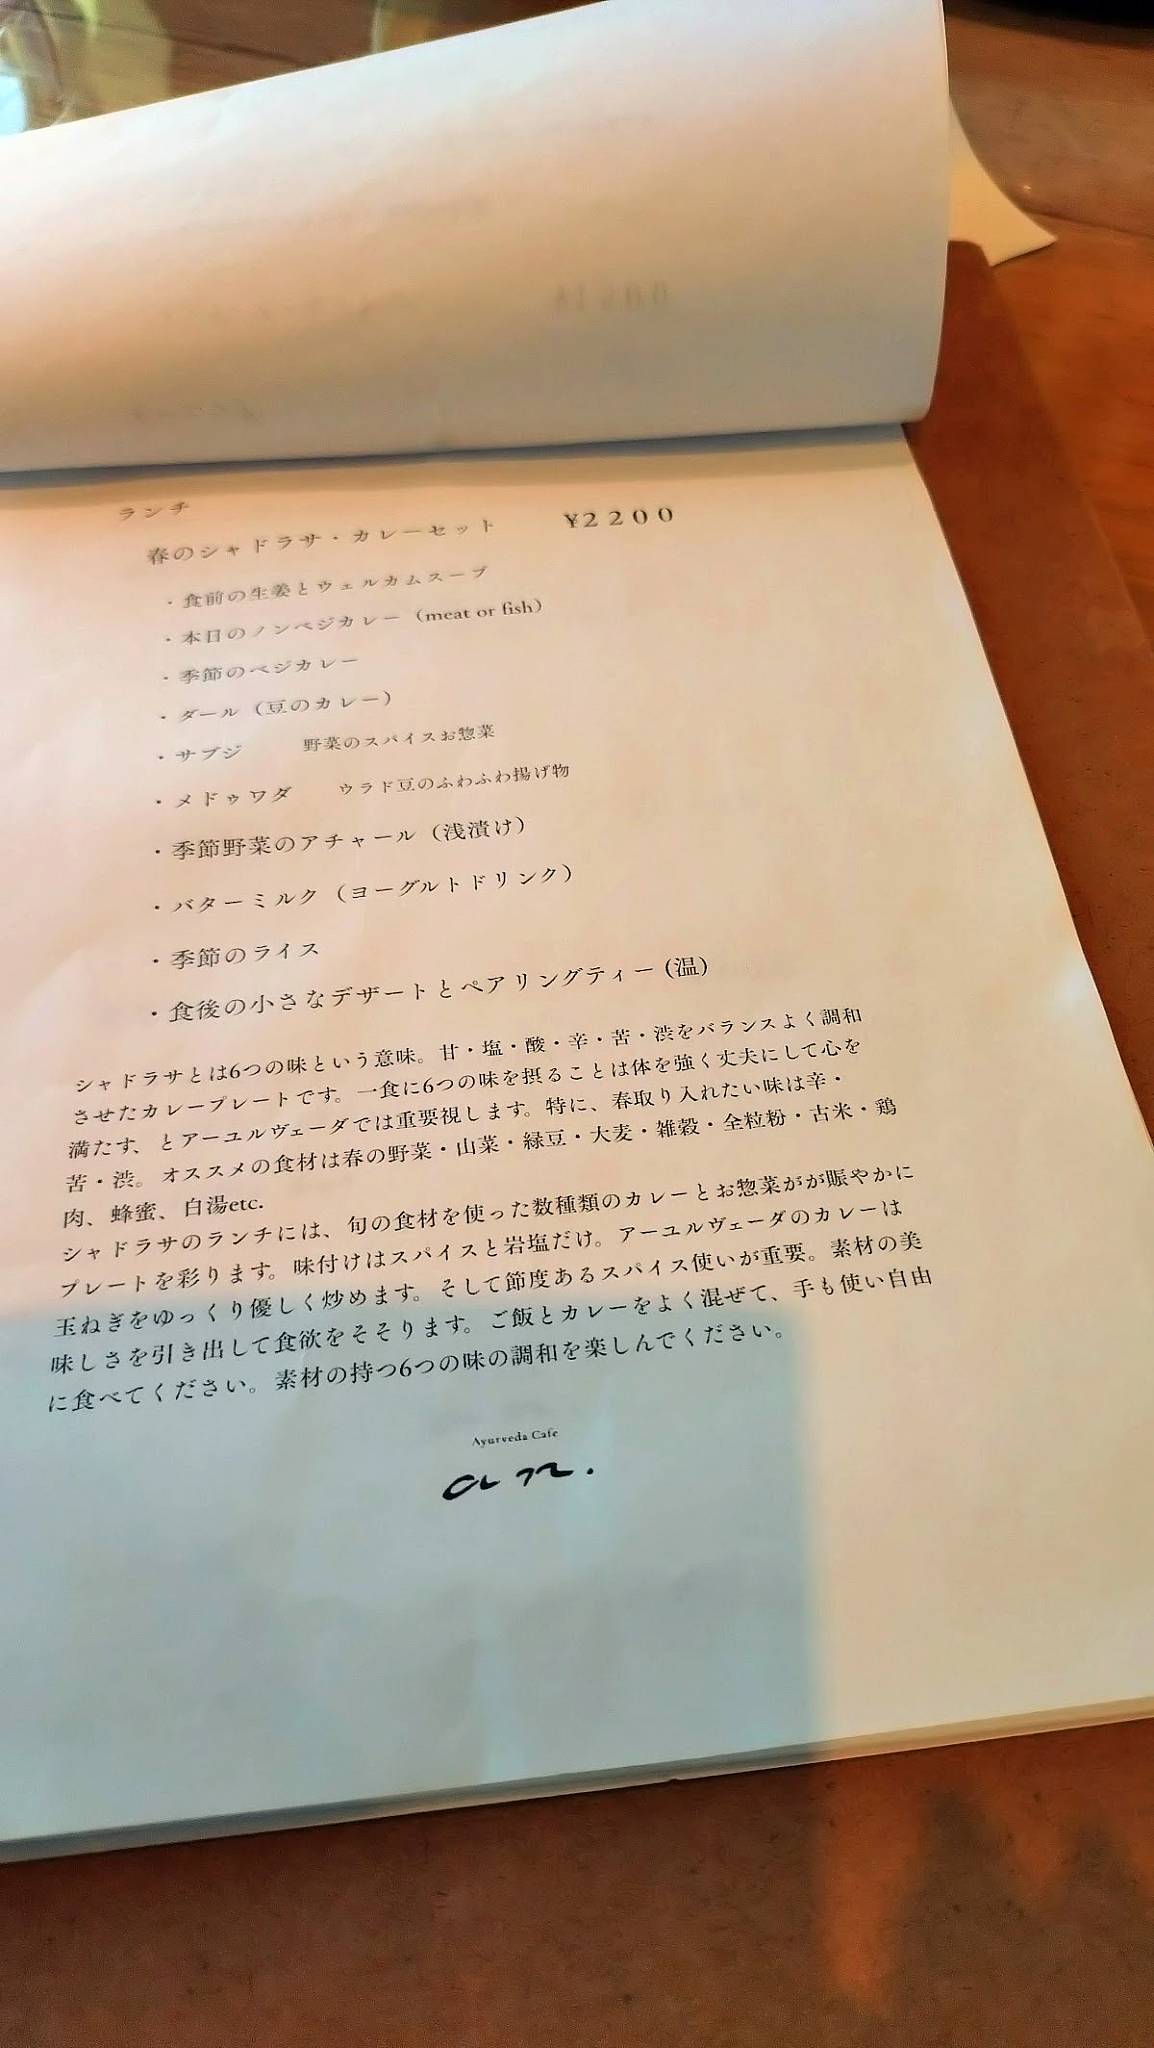 ランチ
春のシャドラサ・カレーセット ¥2200
・食前の生姜とウェルカムスープ
・本日のノンベジカレー（meat or fish）
・季節のベジカレー
・ダール（豆のカレー）
・サブジ 野菜のスパイスお惣菜
・メドゥワダ ウラド豆のふわふわ揚げ物
・季節野菜のアチャール（浅漬け）
・バターミルク（ヨーグルトドリンク）
・季節のライス
・食後の小さなデザートとペアリングティー(温)
シャドラサとは6つの味という意味。甘・塩・酸・辛・苦・渋をバランスよく調和
させたカレープレートです。一食に6つの味を摂ることは体を強く丈夫にして心を
満たす、とアーユルヴェーダでは重要視します。特に、春取り入れたい味は辛・
苦・渋。オススメの食材は春の野菜・山菜・緑豆・大麦・雑穀・全粒粉・古米・鶏
肉、蜂蜜、白湯etc.
シャドラサのランチには、旬の食材を使った数種類のカレーとお惣菜がが賑やかに
プレートを彩ります。味付けはスパイスと岩塩だけ。アーユルヴェーダのカレーは
玉ねぎをゆっくり優しく炒めます。そして節度あるスパイス使いが重要。素材の美
味しさを引き出して食欲をそそります。ご飯とカレーをよく混ぜて、手も使い自由
に食べてください。素材の持つ6つの味の調和を楽しんでください。
Ayurveda Cafe
an.